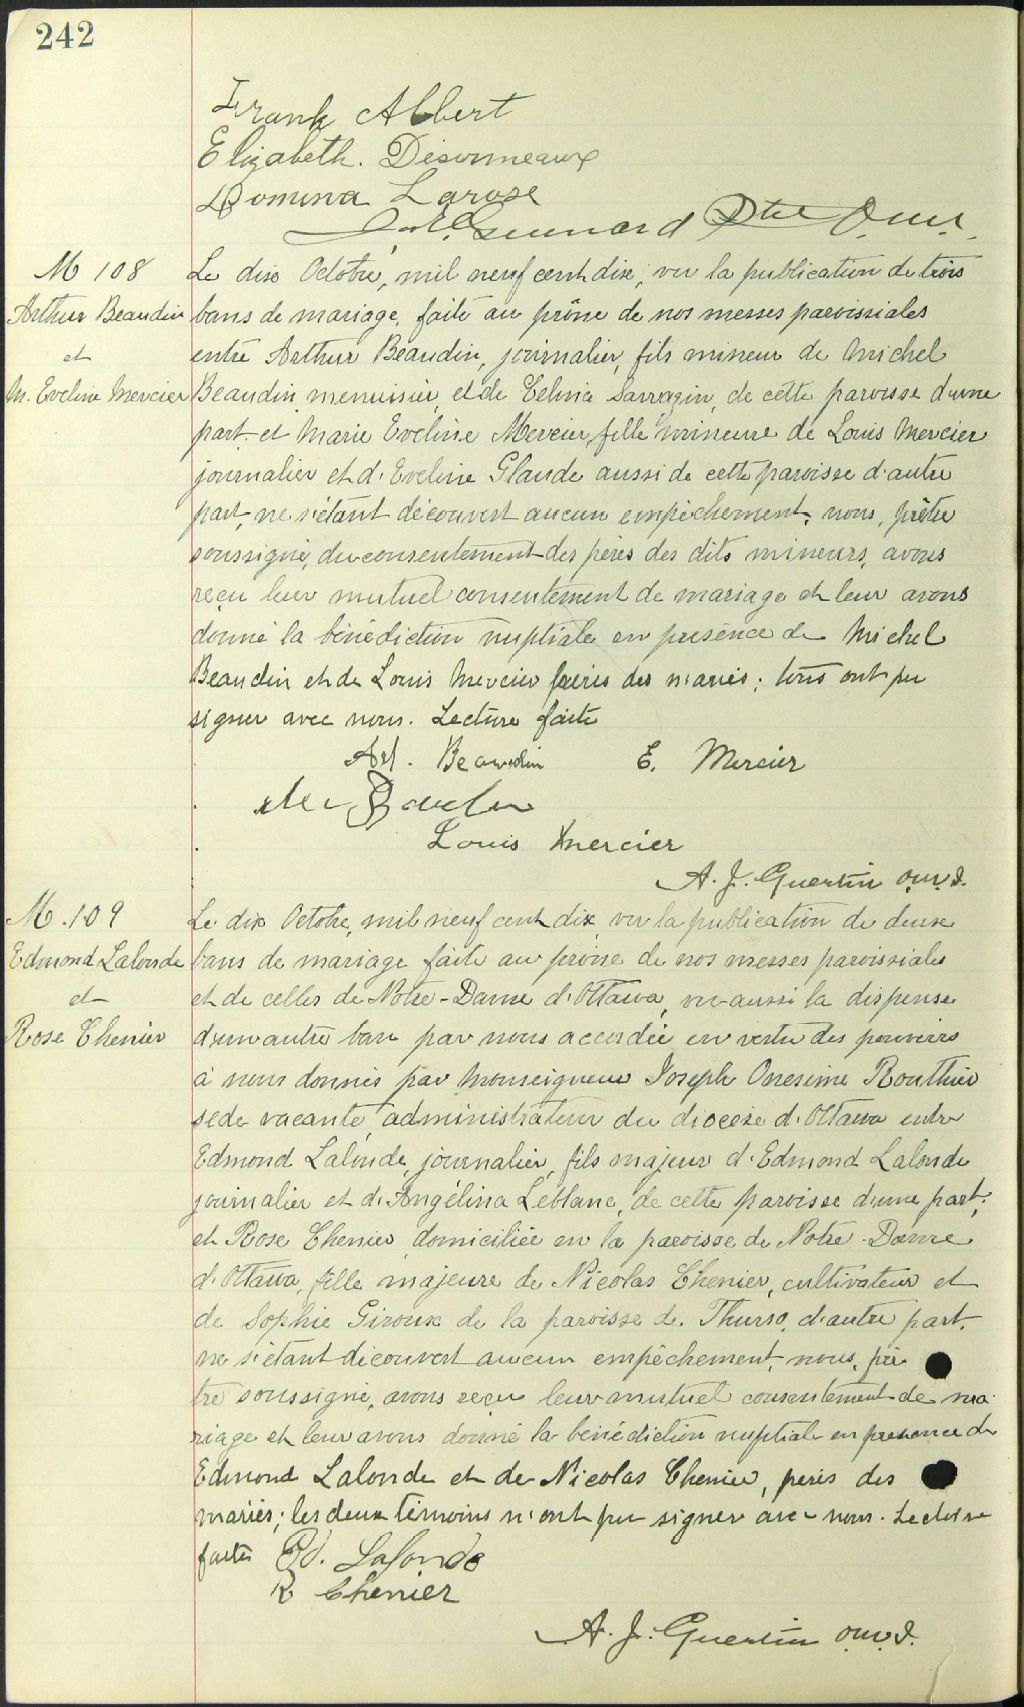 242
Frank Albert
Elizabeth. Désormeaux
Domina Larose
Ptre O.M.I.
M 108
Arthur Beaudin
et
M. Eveline Mercier
Le dix Octobre, mil neuf cent dix, vu la publication de trois
bans de mariage, faite au prône de nos messes paroissiales
entre Arthur Beaudin, journalier, fils mineur de Michel
Beaudin, menuisier, et de Celina Sarrazin, de cette paroisse d'une
part, et Marie Eveline Mercier, fille mineure de Louis Mercier
journalier et d'Eveline Glaude aussi de cette paroisse d'autre
part, ne s'étant découvert aucun empêchement, nous, prêtre
soussigné, du consentement des pères des dits mineurs, avons
reçu leur mutuel consentement de mariage et leur avons
donné la bénédiction nuptiale en présence de Michel
Beaudin et de Louis Mercier pères des mariés; tous ont pu
signer avec nous. Lecture faite
Art. Beaudin E. Mercier
Louis Mercier
A. J. Guertin O.M.I.
M. 109
Edmond Lalonde
et
Rose Chenier
Le dix Octobre, mil neuf cent dix, vu la publication de deux
bans de mariage faite au prône de nos messes paroissiales
et de celles de Notre-Dame d'Ottawa, vu aussi la dispense
d'un autre ban par nous accordée en vertu des pouvoirs
à nous donnés par Monseigneur Joseph Onesime Routhier
sede vacante, administrateur du diocèse d'Ottawa entre
Edmond Lalonde, journalier, fils majeur d'Edmond Lalonde
journalier et d'Angélina Leblanc, de cette paroisse d'une part;
et Rose Chenier, domiciliée en la paroisse de Notre-Dame
d'Ottawa, fille majeure de Nicolas Chenier, cultivateur et
de Sophie Giroux de la paroisse de Thurso, d'autre part.
ne s'étant découvert aucun empêchement, nous, prê
tre soussigné, avons reçu leur mutuel consentement de ma-
riage et leur avons donné la bénédiction nuptiale en presence de
Edmond Lalonde et de Nicolas Chenier, pères des
mariés; les deux témoins n'ont pu signer avec nous. Lecture
faite Ed. Lalonde
R Chenier
A. J. Guertin O.M.I.